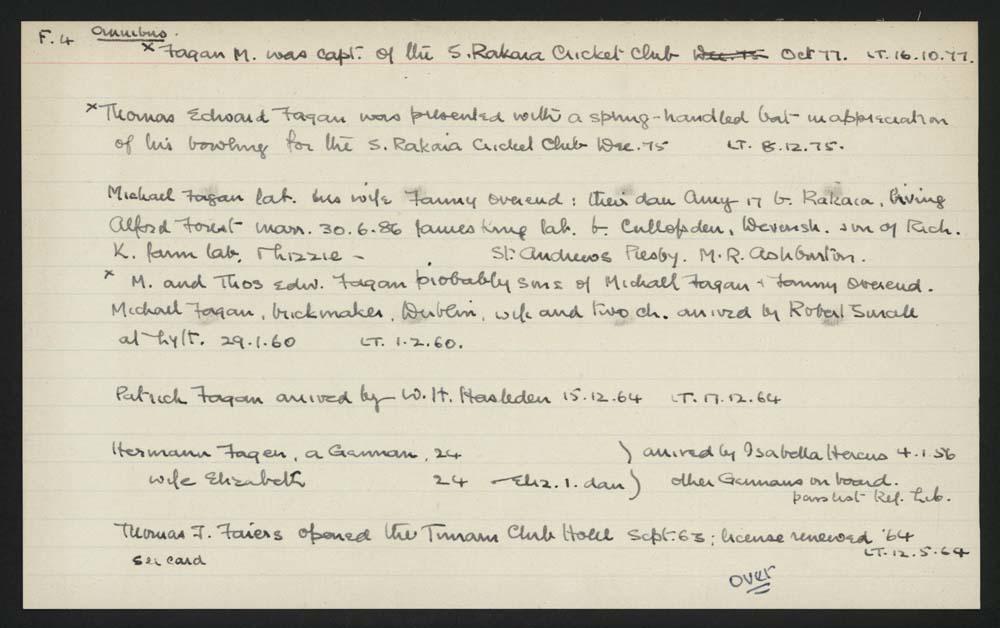 F.4 Omnibus.
x Fagan M. was capt. of the S. Rakaia Cricket Club Dec. 75 Oct 77. LT. 16.10.77.
x Thomas Edward Fagan was presented with a spring-handled bat in appreciation
of his bowling for the S. Rakaia Cricket Club Dec. 75 LT. 8.12.75.
Michael Fagan lab. his wife Fanny Overend : their dau Amy 17 b. Rakaia, living
Alford Forest marr. 30.6.86 James King lab. b. Cullopden, Devonsh. son of Rich.
K. farm lab, Thizzie - St. Andrews Presby. M.R. Ashburton.
x M. and Thos Edw. Fagan probably sons of Michael Fagan + Fanny Overend.
Michael Fagan, brickmaker, Dublin, wife and two ch. arrived by Robert Small
at Lylt. 29.1.60 LT. 1.2.60.
Patrick Fagan arrived by W. H. Haselden 15.12.64 LT. 17.12.64
Hermann Fagen, a German, 24 ) arrived by Isabella Hercus 4.1.56
wife Elizabeth 24 - Eliz. 1. dau ) other Germans on board.
pass list Ref. Lib.
Thomas J. Faiers opened the Timaru Club Hotel Sept. 63 ; license renewed '64
LT. 12.5.64
see card
over